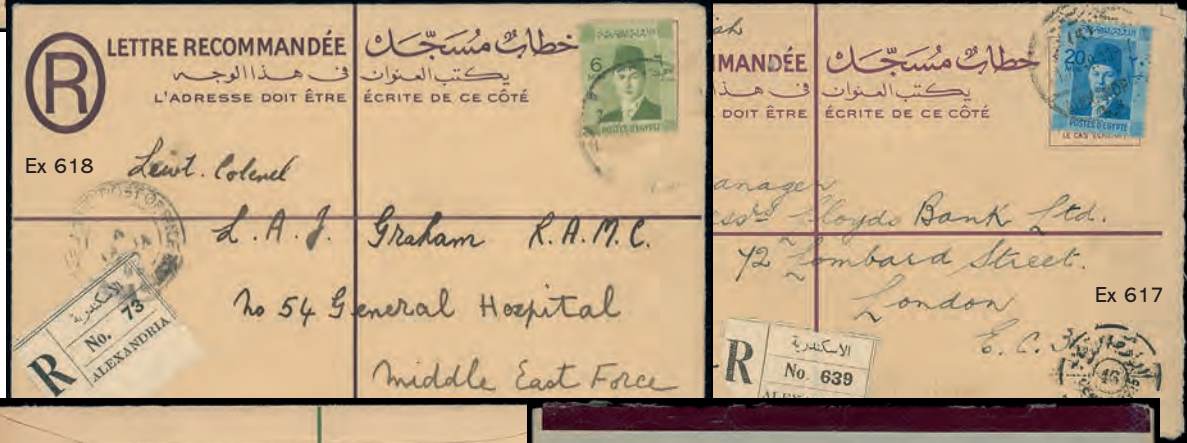 R LETTRE RECOMMANDÉE خطاب مُسَجَّل
فى هذا الوجه يكتب العنوان
L'ADRESSE DOIT ÊTRE ÉCRITE DE CE CÔTÉ
6
POSTES D'EGYPTE
Ex 618
Lewt. Colenel
POST OFFICE
L. A. J. Graham R.A.M.C.
No 54 General Hospital
Middle East Force
الاسكندرية
R No. 73
ALEXANDRIA
MANDÉE خطاب مُسَجَّل
فى هذا يكتب العنوان
DOIT ÊTRE ÉCRITE DE CE CÔTÉ
20
POSTES D'EGYPTE
anager
Lloyds Bank Ltd.
72 Lombard Street.
London
E.C.3
Ex 617
الاسكندرية
R No. 639
46